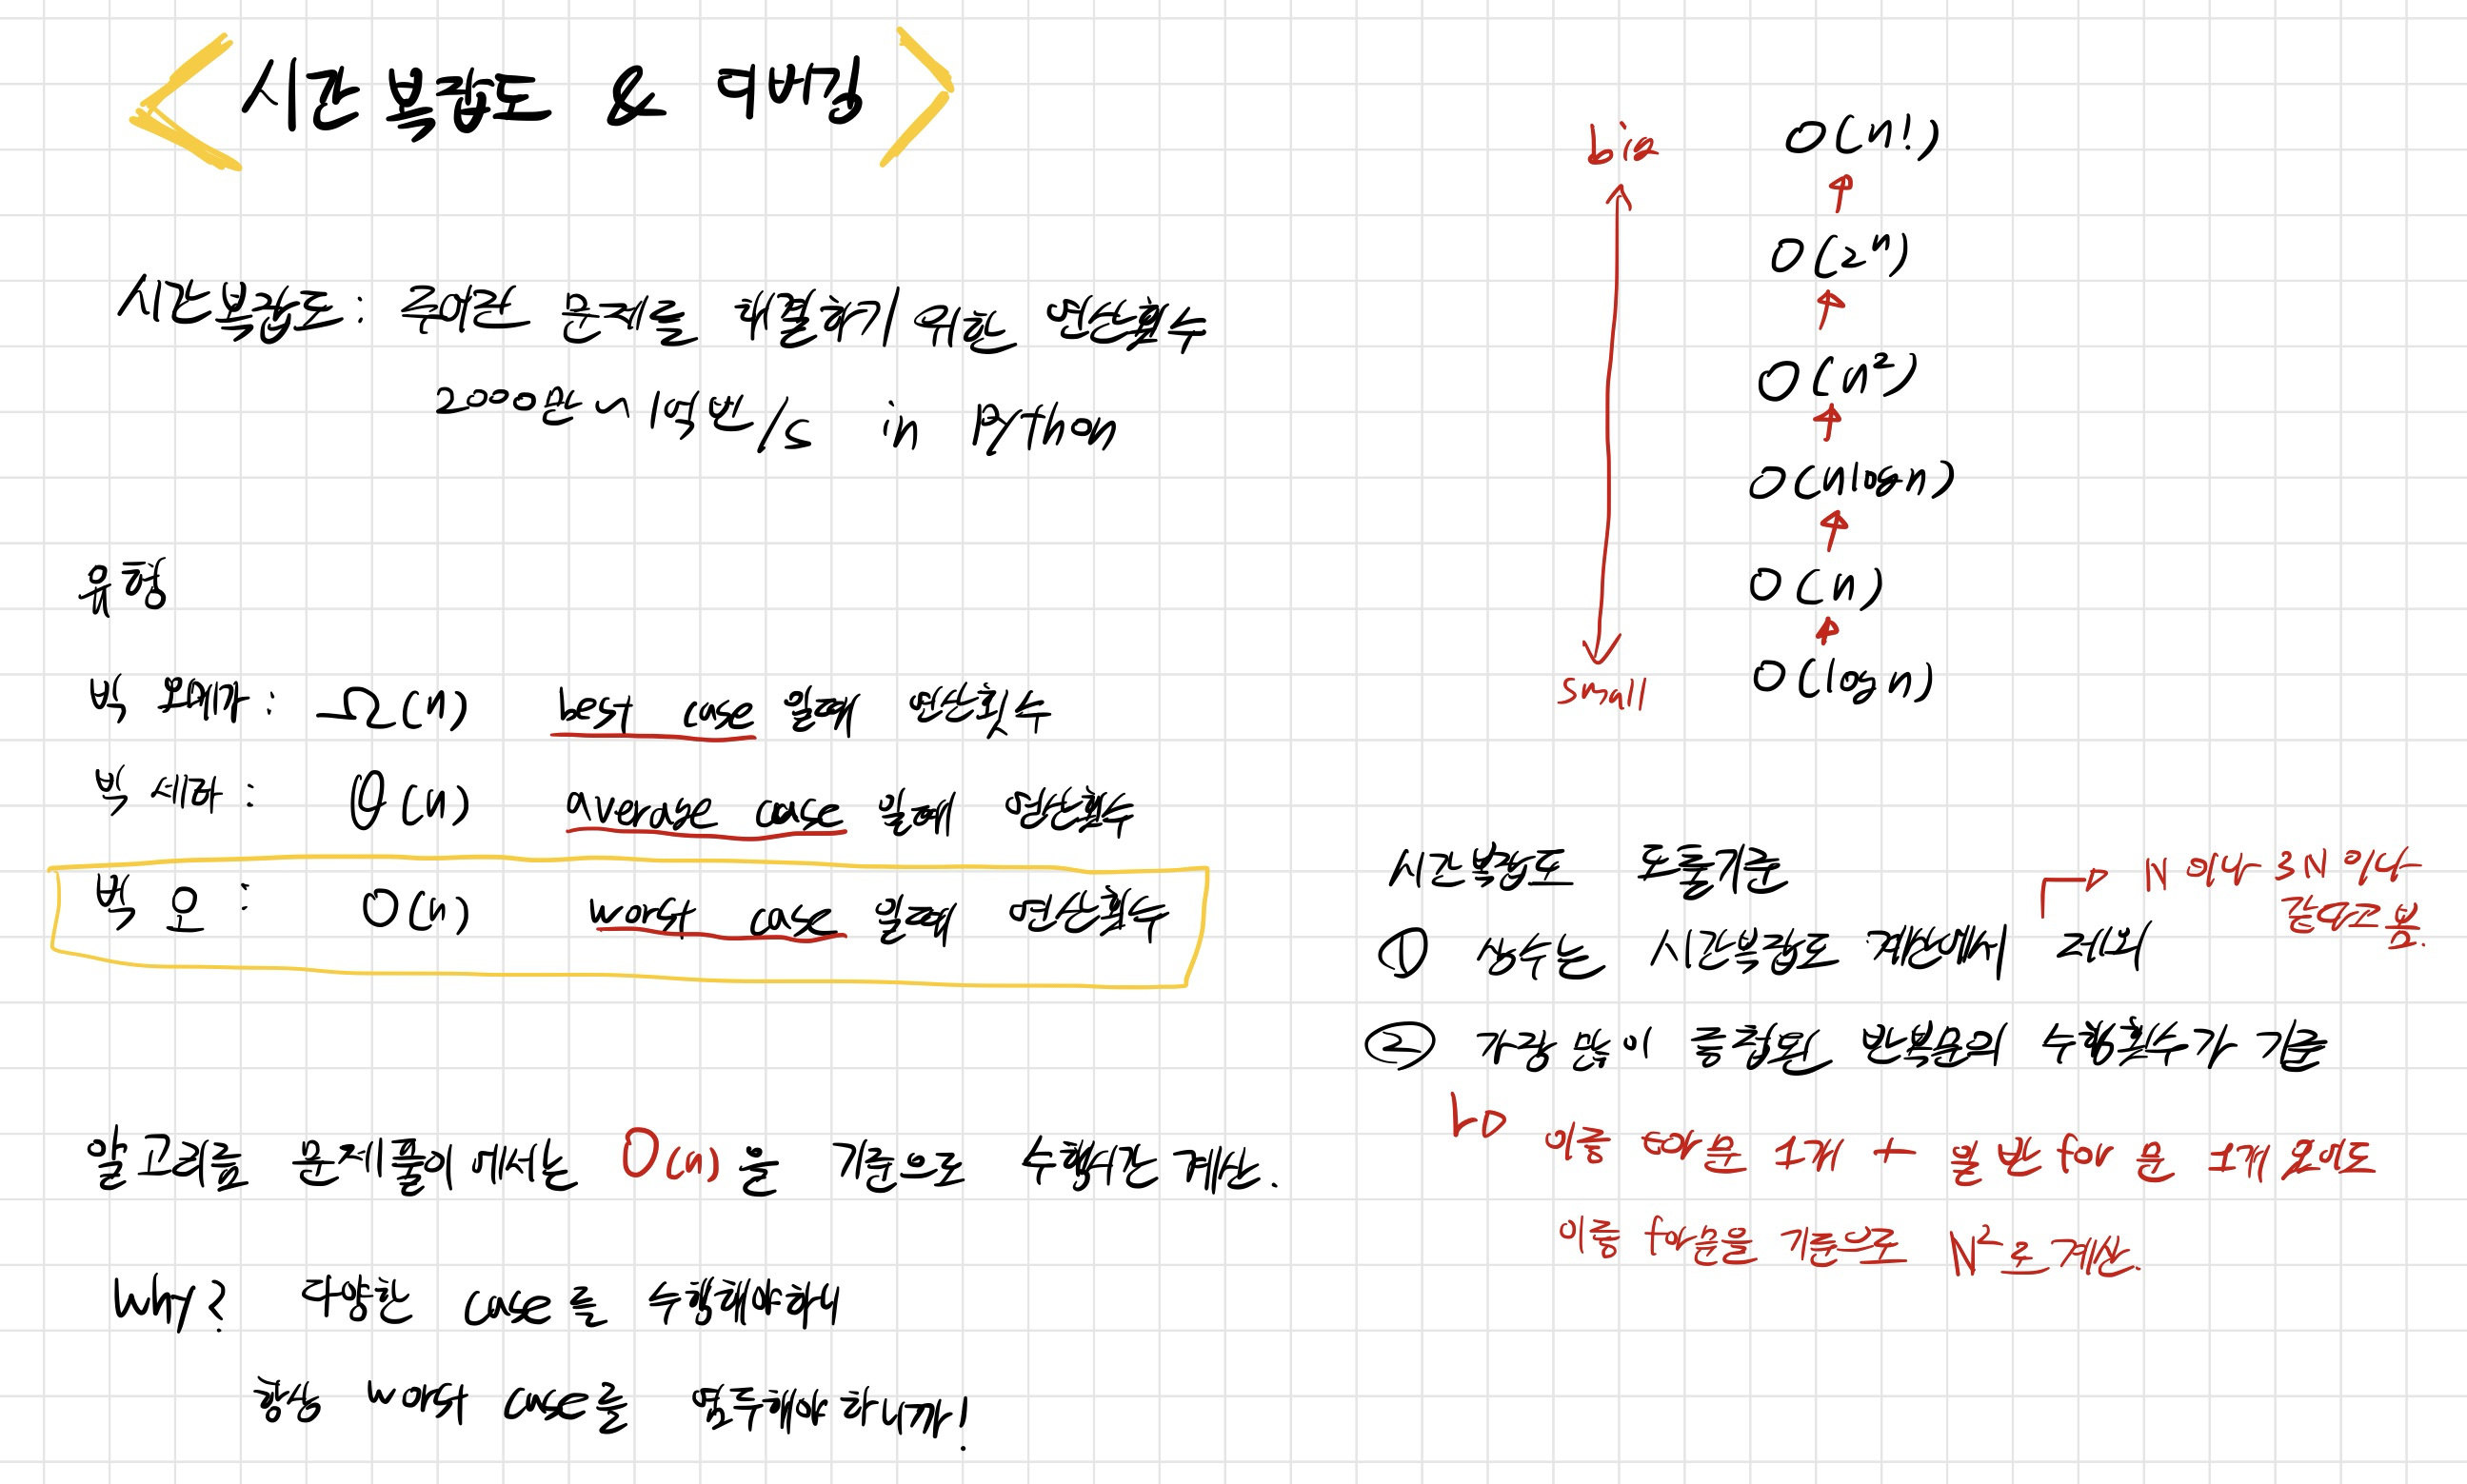 시간 복잡도 & 디버깅
시간복잡도: 주어진 문제를 해결하기 위한 연산횟수
2000만 ~ 1억 번/s in Python
유형
빅 오메가: Ω(n) best case 일때 연산횟수
빅 세타: θ(n) average case 일때 연산횟수
빅 오: O(n) worst case 일때 연산횟수
알고리즘 문제풀이에서는 O(n)을 기준으로 수행시간 계산.
Why? 다양한 case를 수행해야해서
항상 worst case를 염두해야 하니까!
big
O(n!)
O(2ⁿ)
O(n²)
O(nlogn)
O(n)
O(logn)
small
시간복잡도 도출기준
N 이나 3N 이나
같다고 봄.
① 상수는 시간복잡도 계산에서 제외
② 가장 많이 중첩된 반복문의 수행횟수가 기준
이중 for문 1개 + 일반 for 문 1개 있어도
이중 for문을 기준으로 N²로 계산.